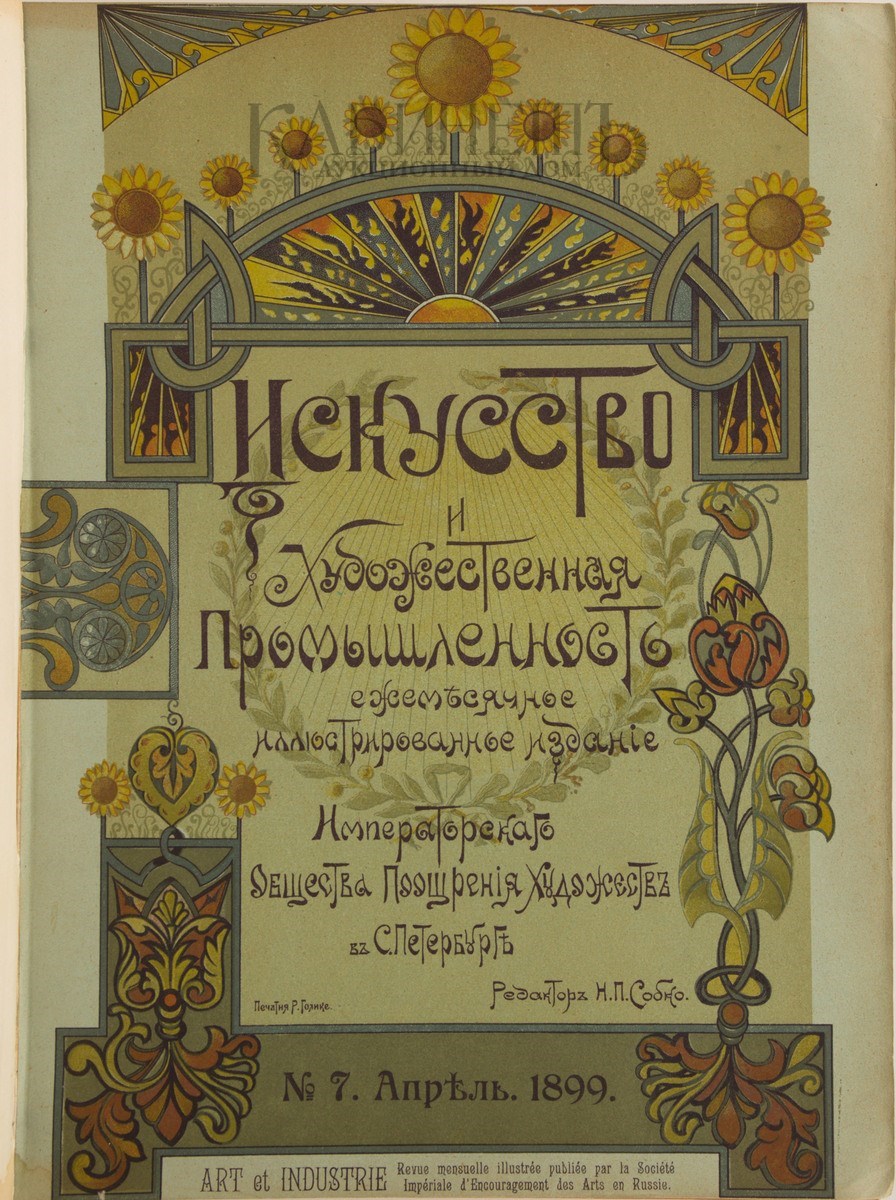 КАБИНЕТЪ
АУКЦИОННЫЙ ДОМ
Искусство
и
Художественная
Промышленность
ежемѣсячное
иллюстрированное изданіе
Императорскаго
Общества Поощренія Художествъ
въ С.Петербургѣ
Редакторъ Н.П.Собко.
Печатня Р.Голике.
№ 7. Апрѣль. 1899.
ART et INDUSTRIE Revue mensuelle illustrée publiée par la Société
Impériale d'Encouragement des Arts en Russie.